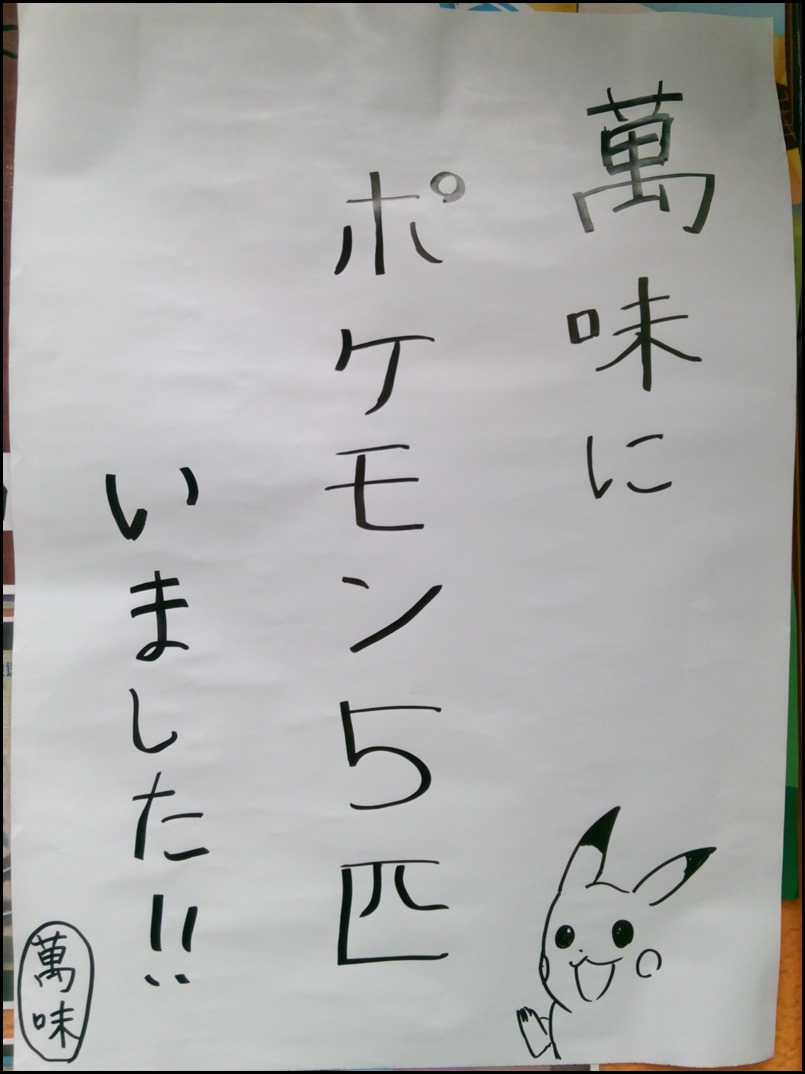 萬味に
ポケモン5匹
いました!!
萬味